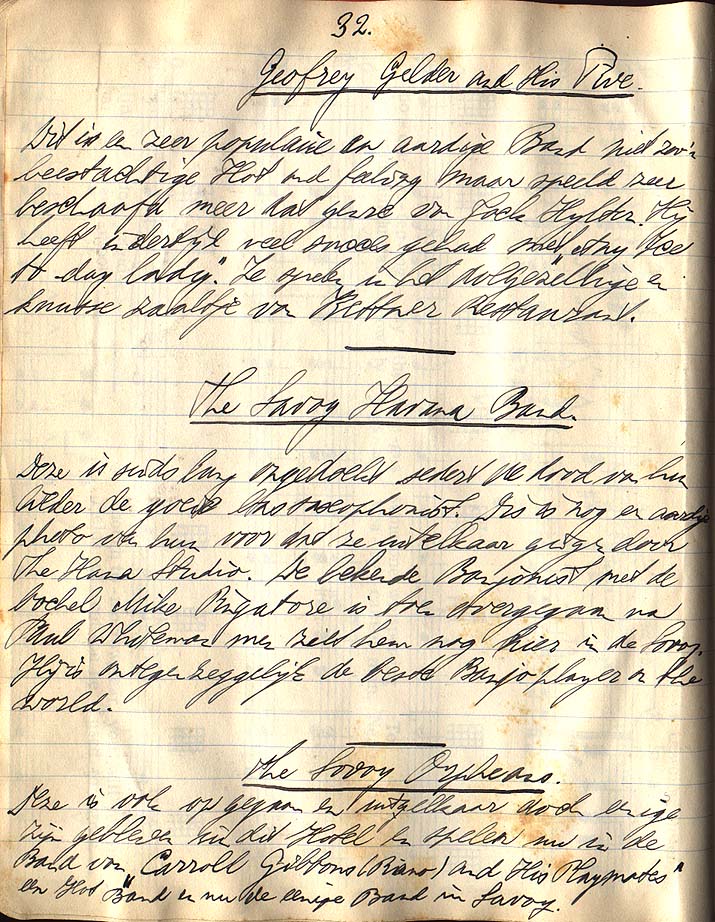 32.
Geofrey Gelder and His Five.
Dit is en zeer populaire en aardige Band niet zoo'n
beestachtige Hot and feeling maar speeld zeer
beschaafd meer dat genre van Jack Hylton. Hij
heeft indertijd veel succes gehad met "Any Ice
to day lady". Ze spelen in het dolgezellige en
knusse zaaltje van Kettner Restaurant.
The Savoy Havana Band.
Deze is sinds lang opgedoekt sedert de dood van hun
leider de goede bassaxophonist. Dis is nog en aardige
photo van hun voor dat ze uitelkaar gingen door
The Hana Studio. De bekende Banjonist met de
bochel Mike Pigatore is toen overgegaan na
Paul Whiteman men ziet hem nog hier in de Savoy.
Hij is ontegenzeggelijk de beste Banjo player in the
world.
The Savoy Orpheans.
Deze is ook op gegaan en uitgelkaar doch enige
zijn gebleven in dit Hotel en spelen nu in de
Band van "Carroll Gibbons (Piano) and His Playmates"
een Hot Band en nu de eenige Band in Savoy.